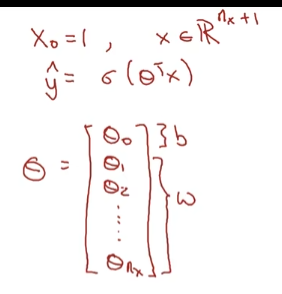 x₀ = 1 , x ∈ ℝⁿˣ⁺¹
ŷ = σ(θᵀx)
θ = [θ₀ } b
θ₁
θ₂ } w
⋮
θₙₓ]